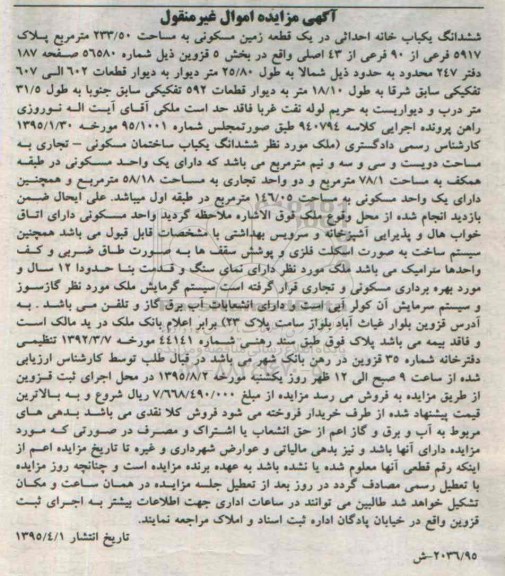 آگهی مزایده اموال غیرمنقول
ششدانگ یکباب خانه احداثی در یک قطعه زمین مسکونی به مساحت ۲۳۳/۵۰ مترمربع پلاک
۵۹۱۷ فرعی از ۹۰ فرعی از ۴۳ اصلی واقع در بخش ۵ قزوین ذیل شماره ۵۶۵۸۰ صفحه ۱۸۷
دفتر ۲۴۷ محدود به حدود ذیل شمالا به طول ۲۵/۸۰ متر دیوار به دیوار قطعات ۶۰۲ الی ۶۰۷
تفکیکی سابق شرقا به طول ۱۸/۱۰ متر به دیوار قطعات ۵۹۲ تفکیکی سابق جنوبا به طول ۳۱/۵
متر درب و دیواریست به حریم لوله نفت غربا فاقد حد است ملکی آقای آیت اله نوروزی
راهن پرونده اجرایی کلاسه ۹۴۰۷۹۴ طبق صورتمجلس شماره ۹۵/۱۰۰۱ مورخه ۱۳۹۵/۱/۳۰
کارشناس رسمی دادگستری (ملک مورد نظر ششدانگ یکباب ساختمان مسکونی – تجاری به
مساحت دویست و سی و سه و نیم مترمربع می باشد که دارای یک واحد مسکونی در طبقه
همکف به مساحت ۷۸/۱ مترمربع و دو واحد تجاری به مساحت ۵۸/۱۸ مترمربع و همچنین
دارای یک واحد مسکونی به مساحت ۱۴۶/۰۵ مترمربع در طبقه اول میباشد. علی ایحال ضمن
بازدید انجام شده از محل وقوع ملک فوق الاشاره ملاحظه گردید واحد مسکونی دارای اتاق
خواب هال و پذیرایی آشپزخانه و سرویس بهداشتی با مشخصات قابل قبول می باشد همچنین
سیستم ساخت به صورت اسکلت فلزی و پوشش سقف ها به صورت طاق ضربی و کف
واحدها سرامیک می باشد ملک مورد نظر دارای نمای سنگ و قدمت بنا حدودا ۱۲ سال و
مورد بهره برداری مسکونی و تجاری قرار گرفته است سیستم گرمایش ملک مورد نظر گازسوز
و سیستم سرمایش آن کولر آبی است و دارای انشعابات آب برق گاز و تلفن می باشد. به
آدرس قزوین بلوار غیاث آباد بلوار ساعت پلاک ۲۳) برابر اعلام بانک ملک در ید مالک است
و فاقد بیمه می باشد پلاک فوق طبق سند رهنی شماره ۴۴۱۴۱ مورخه ۱۳۹۲/۳/۷ تنظیمی
دفترخانه شماره ۳۵ قزوین در رهن بانک شهر می باشد در قبال طلب توسط کارشناس ارزیابی
شده از ساعت ۹ صبح الی ۱۲ ظهر روز یکشنبه مورخه ۱۳۹۵/۸/۲ در محل اجرای ثبت قزوین
از طریق مزایده به فروش می رسد مزایده از مبلغ ۷/۶۶۸/۴۹۰/۰۰۰ ریال شروع و به بالاترین
قیمت پیشنهاد شده از طرف خریدار فروخته می شود فروش کلا نقدی می باشد بدهی های
مربوط به آب و برق و گاز اعم از حق انشعاب یا اشتراک و مصرف در صورتی که مورد
مزایده دارای آنها باشد و نیز بدهی مالیاتی و عوارض شهرداری و غیره تا تاریخ مزایده اعم از
اینکه رقم قطعی آنها معلوم شده یا نشده باشد به عهده برنده مزایده است و چنانچه روز مزایده
با تعطیل رسمی مصادف گردد در روز بعد از تعطیل جلسه مزایده در همان ساعت و مکان
تشکیل خواهد شد طالبین می توانند در ساعات اداری جهت اطلاعات بیشتر به اجرای ثبت
قزوین واقع در خیابان پادگان اداره ثبت اسناد و املاک مراجعه نمایند.
تاریخ انتشار ۱۳۹۵/۴/۱
۲۰۳۶/۹۵-ش